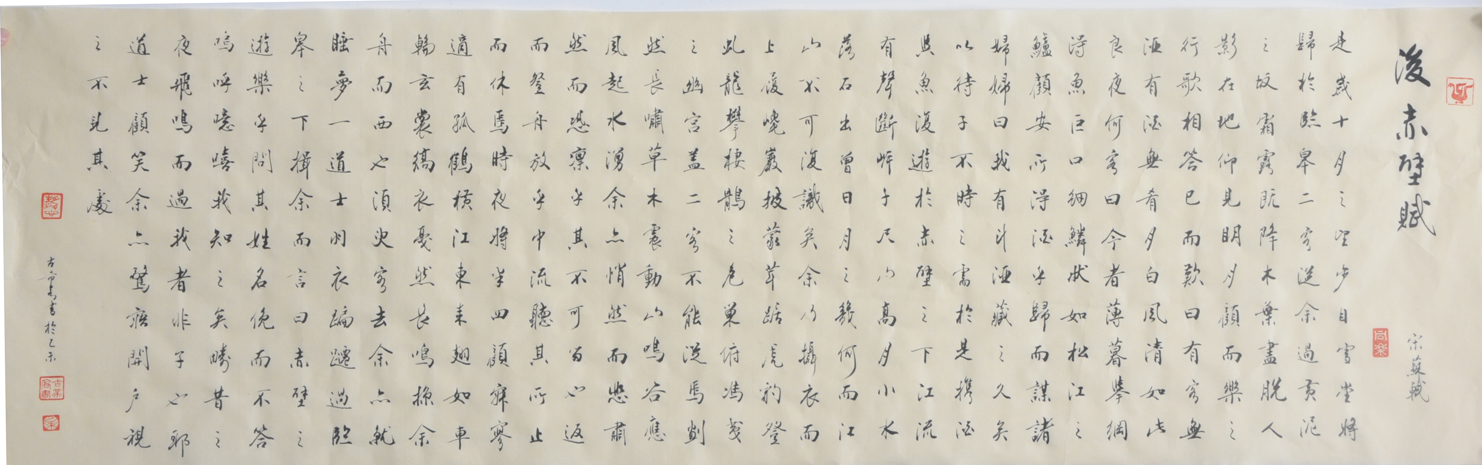 後赤壁賦
宋蘇軾
是歲十月之望步自雪堂將
歸於臨皋二客從余過黃泥
之坂霜露既降木葉盡脫人
影在地仰見明月顧而樂之
行歌相答已而歎曰有客無
酒有酒無肴月白風清如此
良夜何客曰今者薄暮舉網
得魚巨口細鱗狀如松江之
鱸顧安所得酒乎歸而謀諸
婦婦曰我有斗酒藏之久矣
以待子不時之需於是携酒
與魚復遊於赤壁之下江流
有聲斷岸千尺山高月小水
落石出曾日月之幾何而江
山不可復識矣余乃攝衣而
上履巉巖披蒙茸踞虎豹登
虬龍攀棲鶻之危巢俯馮夷
之幽宮蓋二客不能從焉劃
然長嘯草木震動山鳴谷應
風起水湧余亦悄然而悲肅
然而恐凛乎其不可留也返
而登舟放乎中流聽其所止
而休焉時夜將半四顧寂寥
適有孤鶴橫江東來翅如車
輪玄裳縞衣戛然長鳴掠余
舟而西也須臾客去余亦就
睡夢一道士羽衣蹁躚過臨
皋之下揖余而言曰赤壁之
遊樂乎問其姓名俛而不答
嗚呼噫嘻我知之矣疇昔之
夜飛鳴而過我者非子也耶
道士顧笑余亦驚寤開戶視
之不見其處
書於乙未